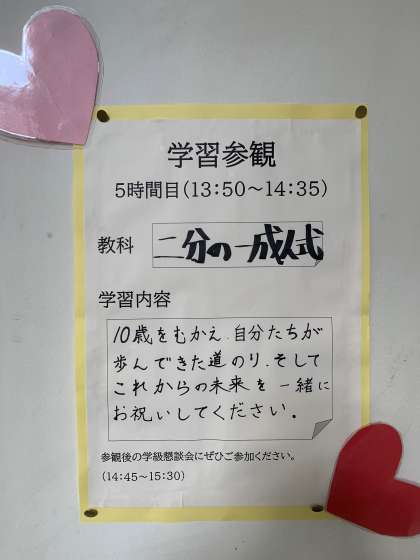 学習参観
5時間目(13:50～14:35)
教科 二分の一成人式
学習内容
10歳をむかえ、自分たちが
歩んできた道のり、そして
これからの未来を一緒に
お祝いしてください。
参観後の学級懇談会にぜひご参加ください。
(14:45～15:30)